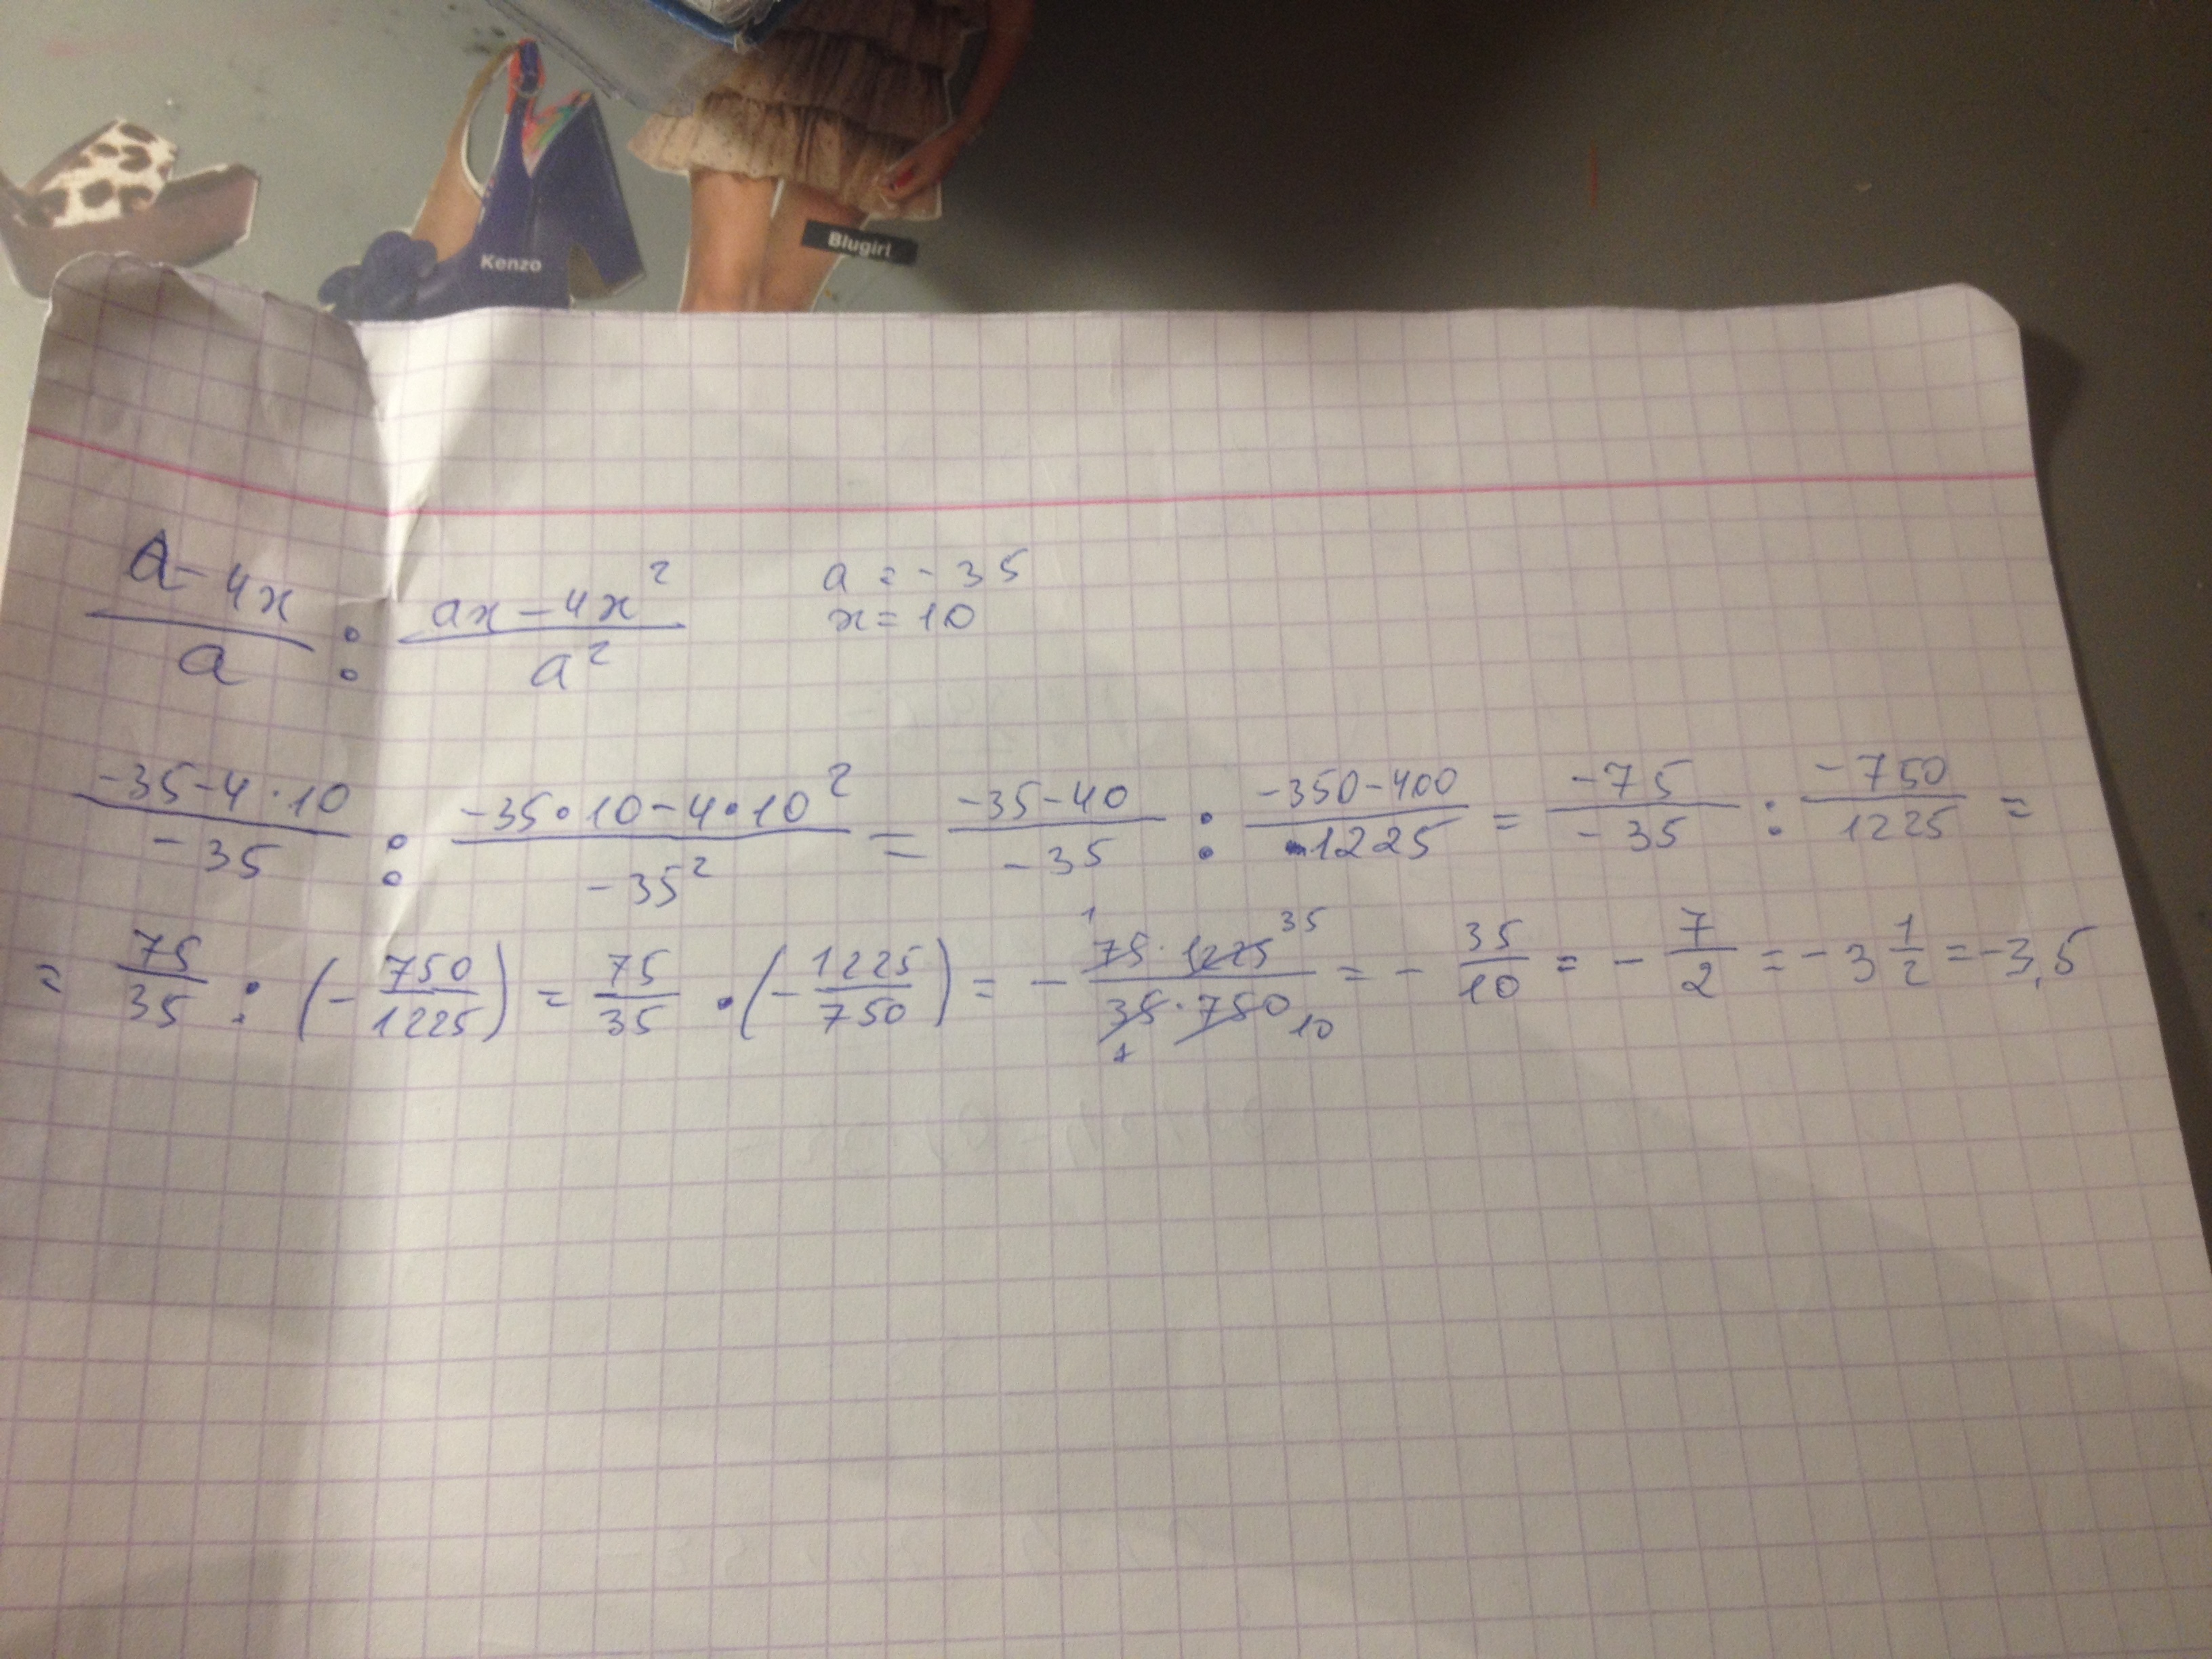 Kenzo
Blugirl
(a-4x)/a : (ax-4x²)/a² a=-35
x=10
(-35-4·10)/(-35) : (-35·10-4·10²)/(-35²) = (-35-40)/(-35) : (-350-400)/1225 = (-75)/(-35) : (-750)/1225 =
= 75/35 : (-750/1225) = 75/35 · (-1225/750) = - (75·1225)/(35·750) 1 35 1 10 = - 35/10 = - 7/2 = -3 1/2 = -3,5